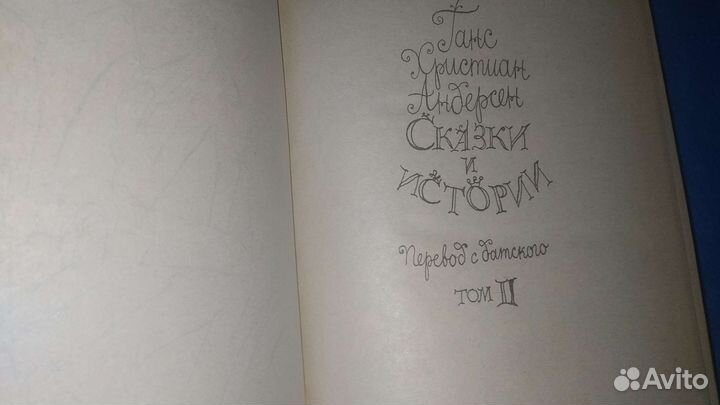 Ганс
Христиан
Андерсен
Сказки
и
истории
Перевод с датского
том II
Avito